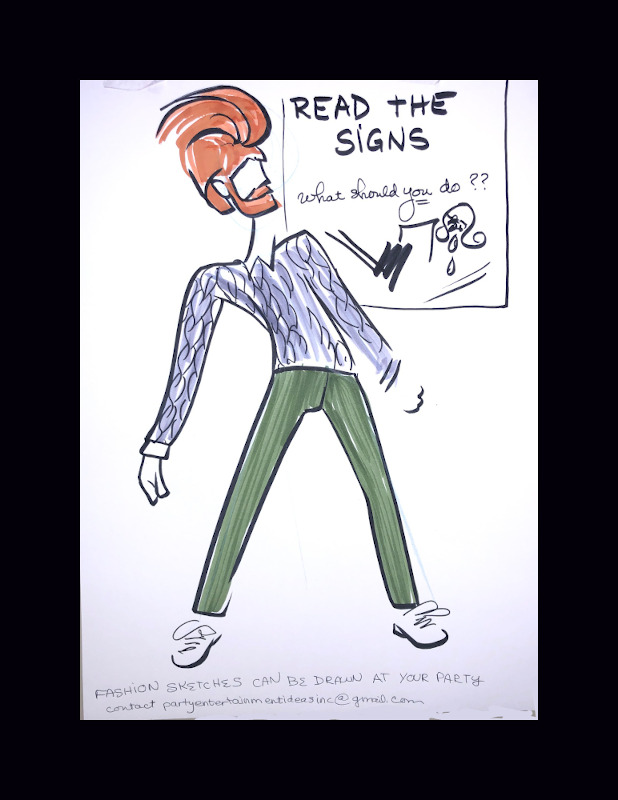 READ THE
SIGNS
what should you do ??
FASHION SKETCHES CAN BE DRAWN AT YOUR PARTY
contact partyentertainmentideasinc@gmail.com